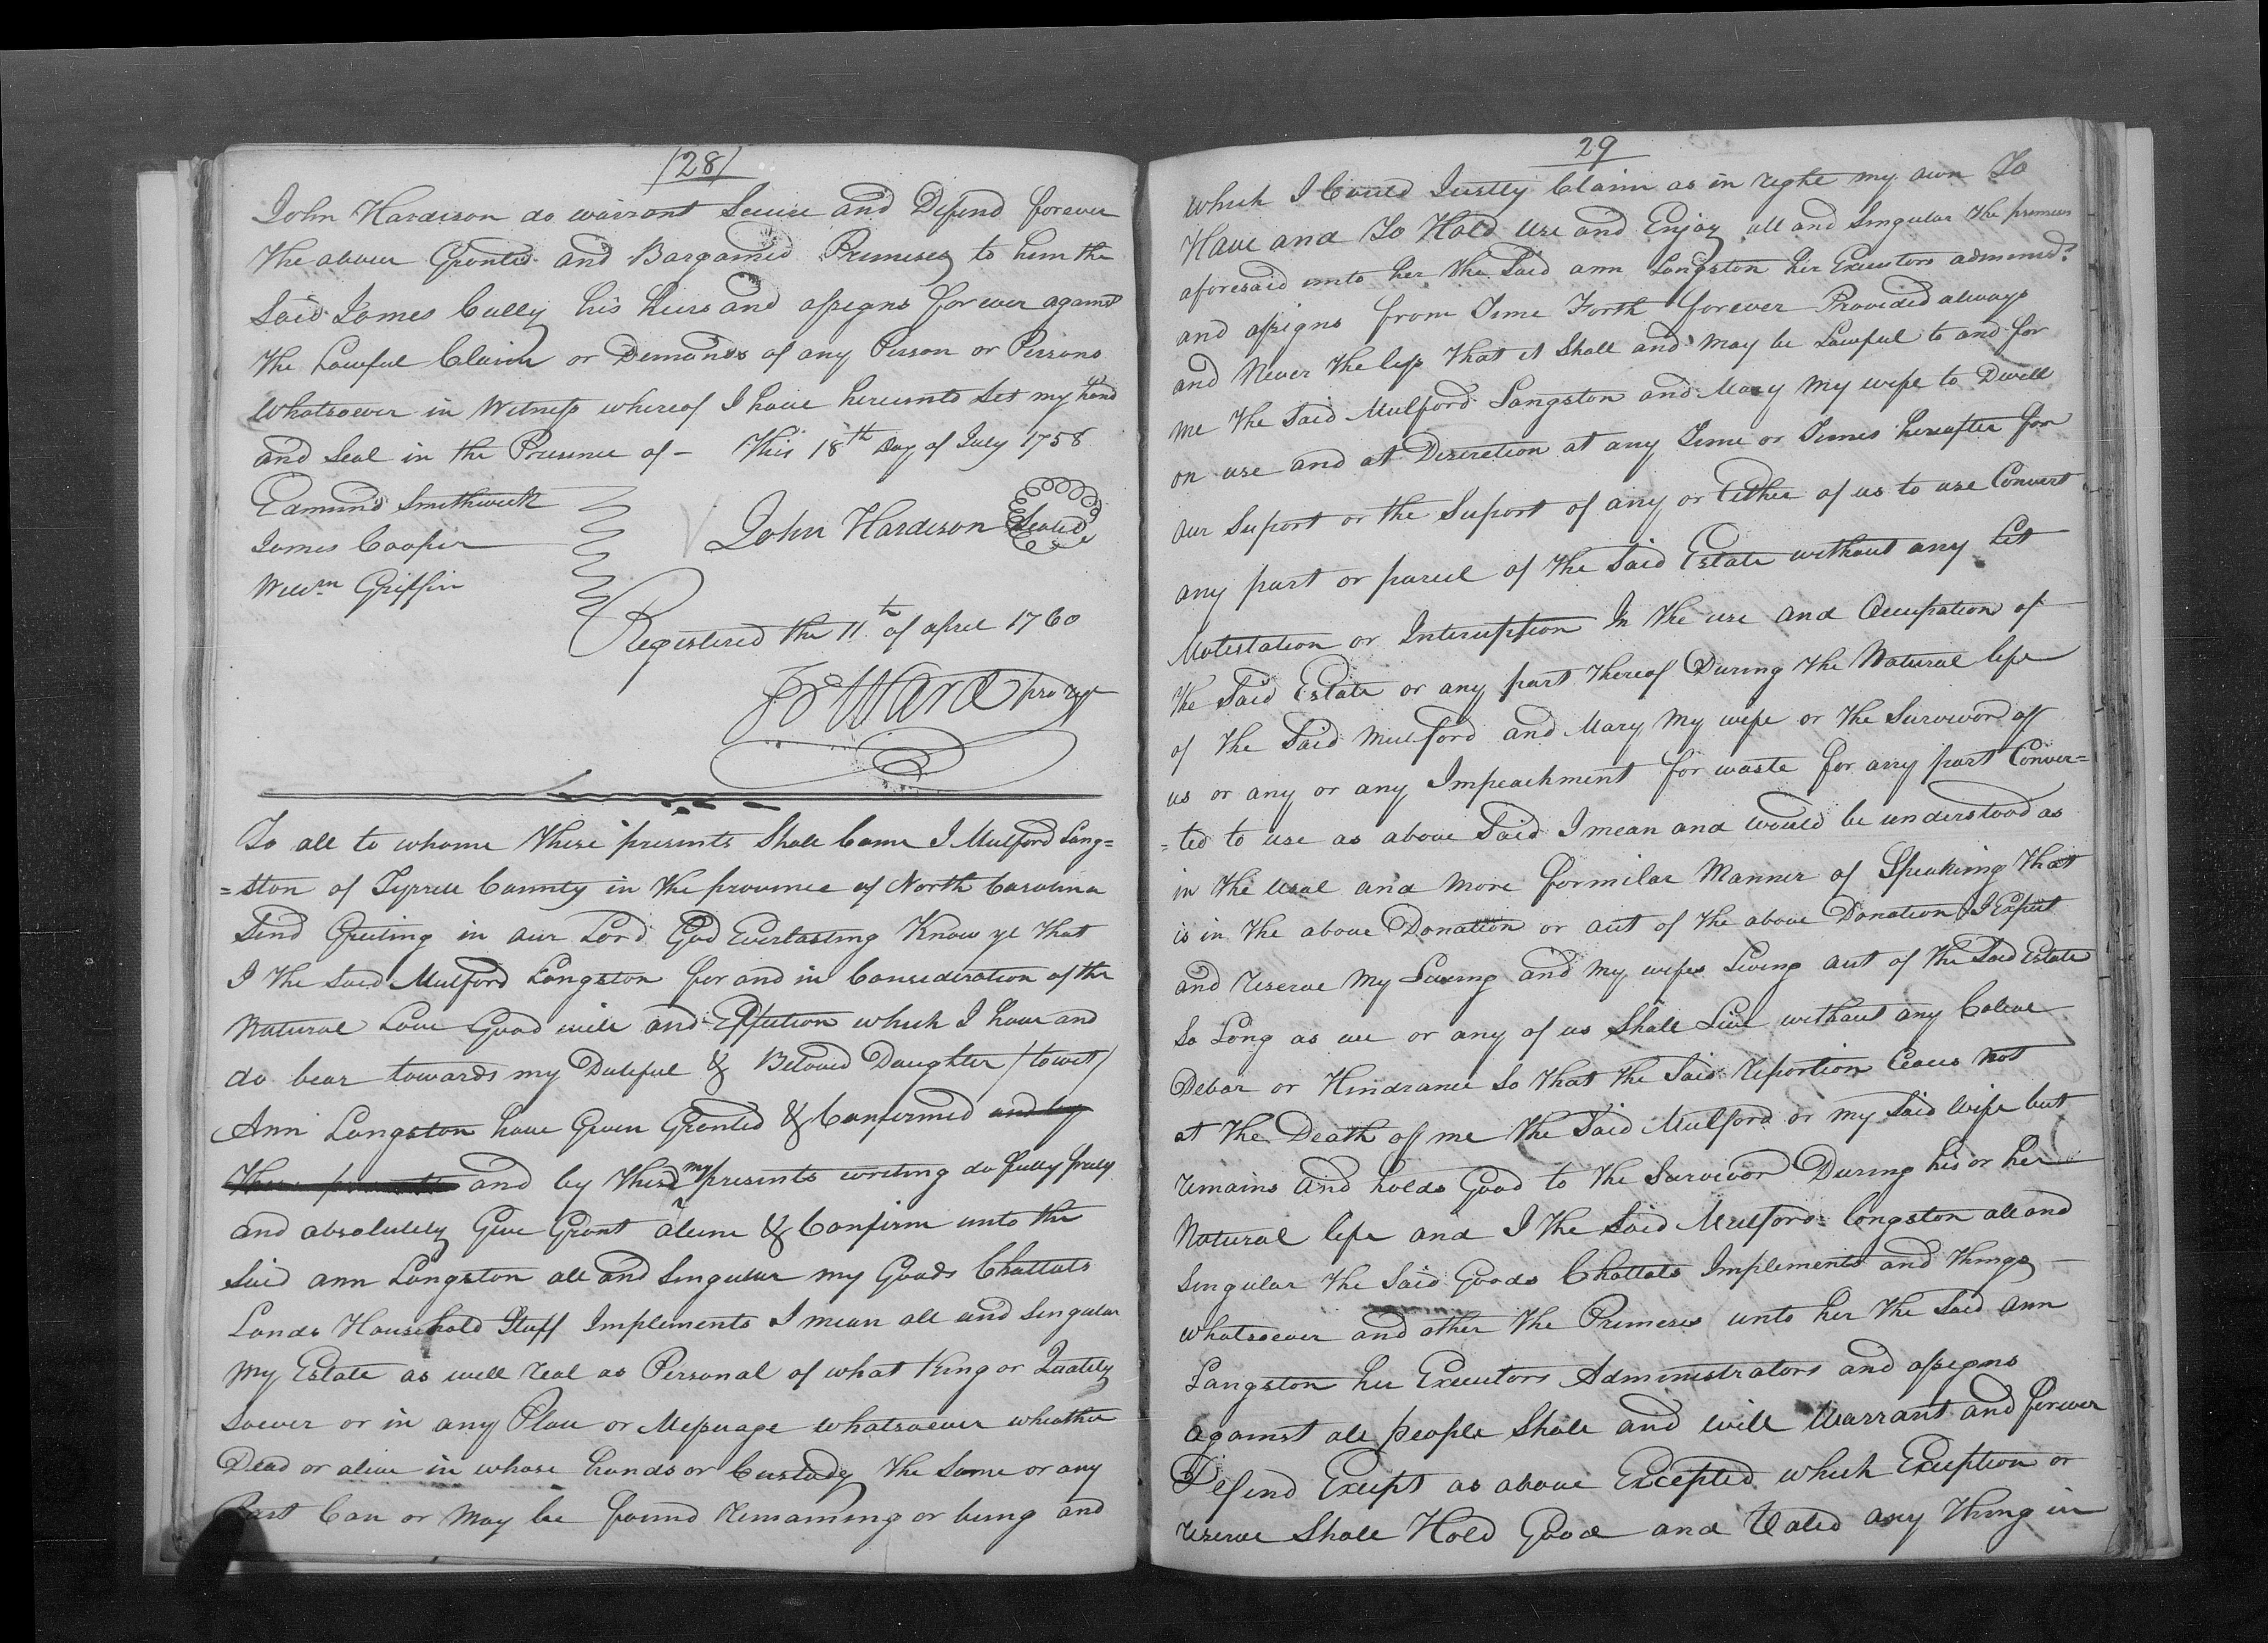 /28/
John Hardison do warrant Secure and Defend forever
the above Granted and Bargained Premises to him the
Said James Cully his heirs and assigns forever against
the Lawful Claim or Demands of any Person or Persons
Whatsoever in Witness whereof I have hereunto Set my hand
and Seal in the Presence of - This 18th Day of July 1758
Edmund Smithwick
James Cooper
Willm Griffin
John Hardison Sealed
Registered the 11th of april 1760
Ward pro Regr
To all to whome these presents Shall Come I Mulford Lang=
=ston of Tyrrell County in the province of North Carolina
Send Greeting in our Lord God Everlasting Know ye that
I the Said Mulford Langston for and in Consideration of the
Natural Love Good will and Effection which I have and
do bear towards my Dutiful & Beloved Daughter /towit/
Ann Langston have Given Granted & Confirmed and by
These presents and by these my presents writing do fully freely
and absolutely Give Grant aleene & Confirm unto the
Said ann Langston all and Singular my Goods Chattats
Lands Household Stuff Implements I mean all and Singular
my Estate as well real as Personal of what King or Quality
Soever or in any Place or Messuage whatsoever wheather
Dead or alive in whose hands or Custody the Same or any
Part Can or may be found remaining or being and
29
which I Could Justly Claim as in right my own To
Have and To Hold use and Enjoy all and Singular the premises
aforesaid unto her the Said ann Langston her Executors adminrd.
and assigns from Time Forth forever Provided always
and Never the less that it Shall and may be Lawful to and for
me the Said Mulford Langston and Mary my wife to Dwell
on use and at Discretion at any Time or Times hereafter for
our Suport or the Suport of any or Either of us to use Convert
any part or parcel of the Said Estate without any Let
Molestation or Interruption In the use and Occupation of
the Said Estate or any part thereof During the Natural life
of the Said Mulford and Mary my wife or the Survivor of
us or any or any Impeachment for waste for any part Conver=
=ted to use as above Said I mean and would be understood as
in the usal and more formilar Manner of Speaking that
is in the above Donation or out of the above Donation I Expect
and reserve my Living and my wifes Living out of the Said Estate
So Long as we or any of us Shall Live without any
Debar or Hindrance So that the Said Ceaces not
at the Death of me the Said Mulford or my Said Wife but
remains and holds Good to the Survivor During his or her
Natural life and I the Said Mulford Longston all and
Singular the Said Goods Chattats Implements and things
whatsoever and other the Premeses unto her the Said ann
Langston her Executors Administrators and assigns
against all people Shall and will Warrant and forever
Defend Except as above Excepted which Exception or
reserve Shall Hold Good and Valed any thing in